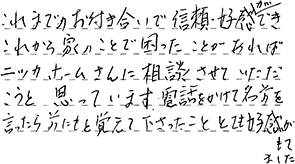 これまでのお付き合いで信頼・好感ができ
これから家のことで困ったことがあれば
ニッカホームさんに相談させていただ
こうと思っています。電話をかけて名前を
言ったら方にもと覚えて下さったこととても好感が
もて
ました